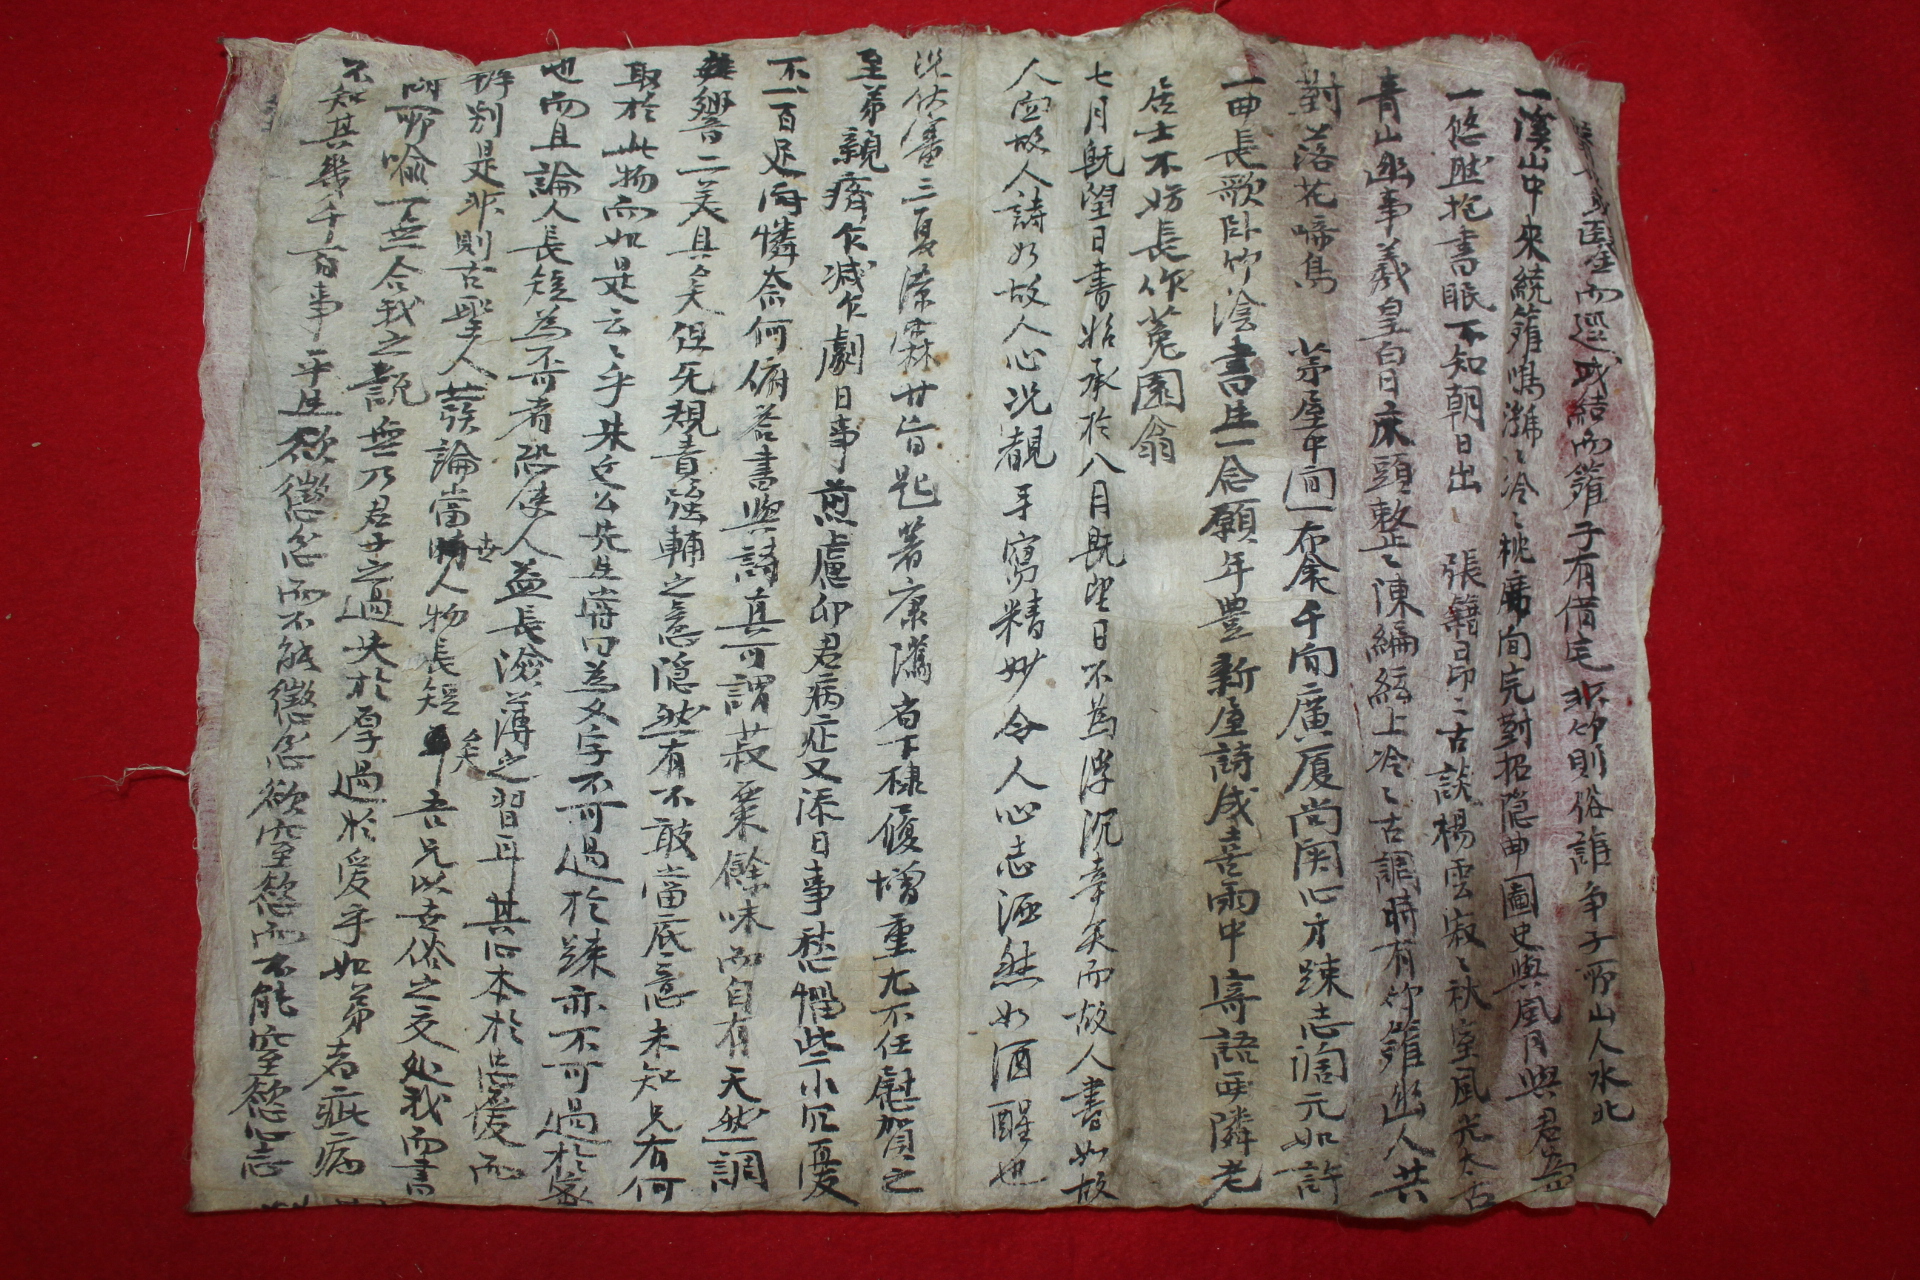 而還我結而籬子有借宅非竹則俗誰爭子所山人水北
一溪山中來繞籬鳴瀰〻冷〻枕席間完對招隱曲圖史與風月與君
一悠然抱書眠不知朝日出 張籍日昂〻古談楊雲寂〻秋室風光太古
靑山幽事羲皇白日床頭整〻陳編絃上冷〻古調時有竹籬幽人共
對落花啼鳥 茅屋中間一布衾千間廣厦尙關心才踈志濶元如許
一曲長歌臥竹陰書生一念願年豊新屋詩成喜雨中寄語西隣老
居士不妨長作菟園翁
七月旣望日書始承於八月旣望日不爲浮沉幸矣而故人書如故
人面故人詩如故人心况覩手寫精妙令人心志洒然如酒醒也
况伏審三夏潦霖廿旨匙著康灕省下棣履增重尤不任慰賀之
至弟親癠乍減乍劇日事煎慮卯君病症又添日事愁惱些小冗憂
不一百足向憐奈何俯答書與詩眞可謂菽粟餘味而自有天然調
響二美具矣但旡規責强輔之意隐然有不敢當底意未知兄有何
取於此物而如是云〻乎朱文公先生嘗曰爲文字不可過於踈亦不可過於
也而且論人長短爲否可者恐使人益長澆薄之習耳其心本於忠愛而
辨別是非則古聖人發論當世人物長短矣 吾兄以世俗之交処我而書
所喩一無合我之說無乃君子之過失於厚過於愛乎如弟者疵病
不知其幾千百事平生欲懲忿而不能懲忿欲窒慾而不能窒慾心志